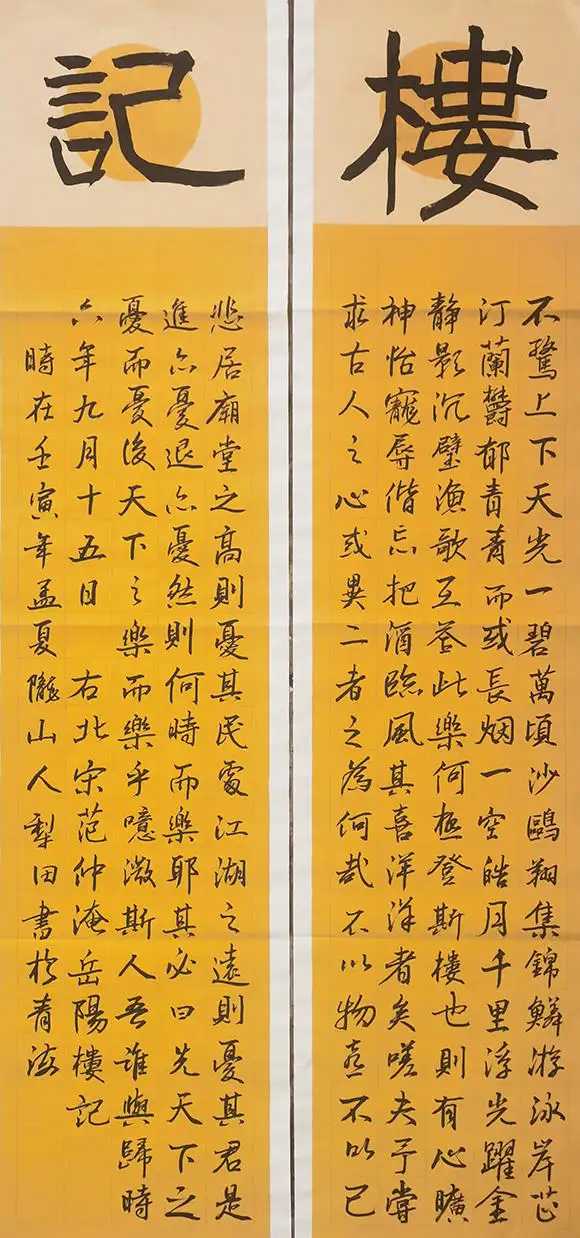 樓
不驚上下天光一碧萬頃沙鷗翔集錦鱗游泳岸芷
汀蘭欝郁青青而或長烟一空皓月千里浮光躍金
靜影沉璧漁歌互荅此樂何極登斯樓也則有心曠
神怡寵辱偕忘把酒臨風其喜洋洋者矣嗟夫予嘗
求古人之心或異二者之為何哉不以物喜不以己
記
悲居廟堂之高則憂其民處江湖之遠則憂其君是
進亦憂退亦憂然則何時而樂耶其必曰先天下之
憂而憂後天下之樂而樂乎噫微斯人吾誰與歸時
六年九月十五日 右北宋范仲淹岳陽樓記
時在壬寅年孟夏隴山人犁田書於青海